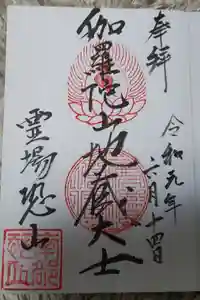 奉拝
令和元年
六月十四日
伽羅陀山地蔵大士
霊場恐山